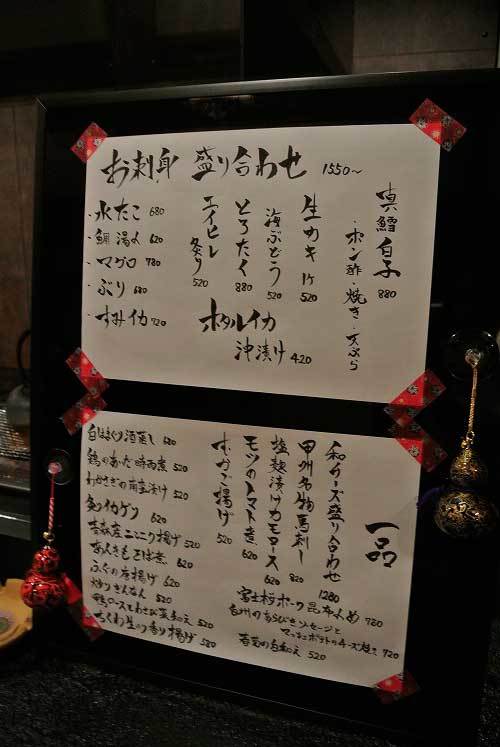 お刺身 盛り合わせ 1550〜
・水たこ 680
・鯛 湯〆 620
・マグロ 780
・ぶり 680
・すみイカ 720
真鱈白子 880
・ポン酢・焼き・天ぷら
生カキ 1ケ 520
海ぶどう 520
とろたく 880
エイヒレ炙り 520
ホタルイカ
沖漬け 420
一品
和チーズ盛り合わせ 1280
甲州名物馬刺し 820
塩麹漬けカモロース 620
モツのトマト煮 620
むかご揚げ 520
白はまぐり酒蒸し 620
鶏のあかだ時雨煮 520
わかさぎの南蛮漬け 520
炙りイカゲソ 620
青森産ニンニク揚げ 520
あんきもとば煮 620
ふぐの唐揚げ 620
炒りぎんなん 520
鴨ロースとわさび菜和え 520
ちくわ生のり香り揚げ 520
富士桜ポーク昆布〆め 780
マッシュポテトのチーズ焼き 720
春菊の白和え 520